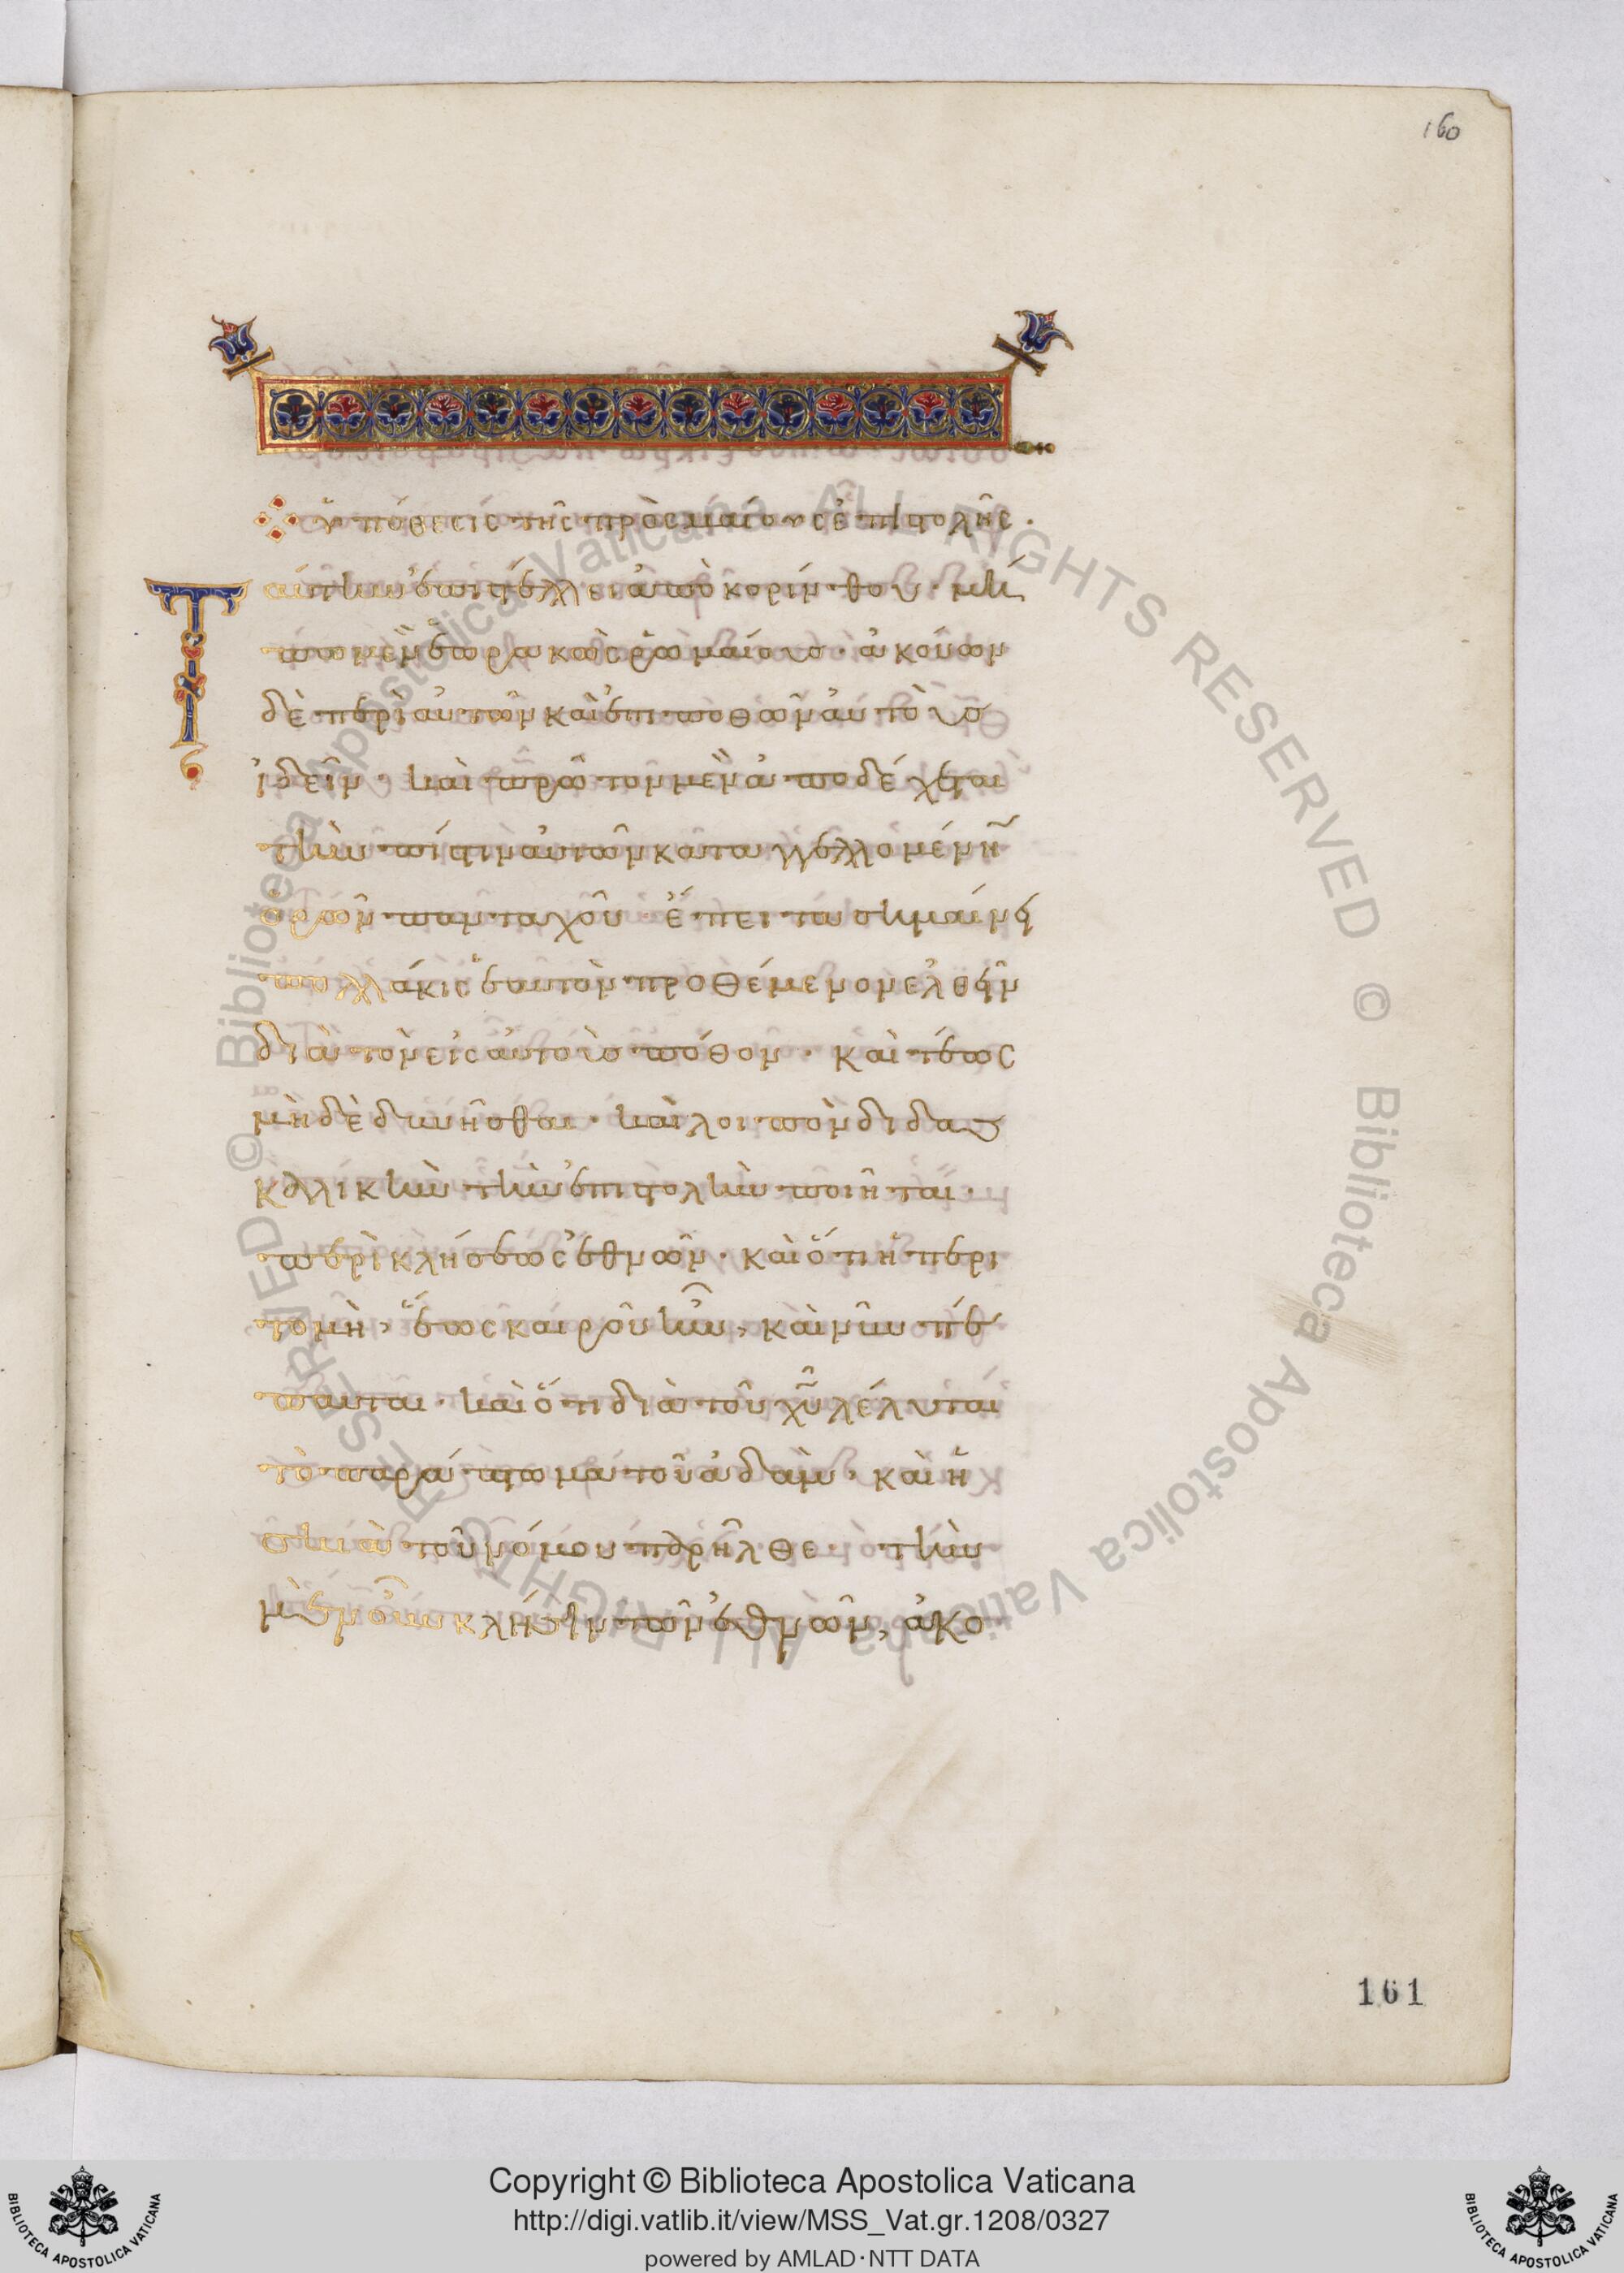 160
ὑπόθεσις τῆς πρὸς ῥωμαίους ἐπιστολῆς.
Ταύτην ἐπιστέλλει ἀπὸ κορίνθου· μή
πω μὲν ἑωρακὼς ῥωμαίους· ἀκούων
δὲ περὶ αὐτῶν καὶ ἐπιποθῶν αὐτοὺς
ἰδεῖν· καὶ πρῶτον μὲν ἀποδέχεται
τὴν πίστιν αὐτῶν καταγγελλομένη
ὁρῶν πανταχοῦ· ἔπειτα σημαίνει
πολλάκις ἑαυτὸν προθέμενον ἐλθεῖν
διὰ τὸν εἰς αὐτοὺς πόθον· καὶ τέως
μὴ δεδυνῆσθαι· καὶ λοιπὸν διδασ
καλικὴν τὴν ἐπιστολὴν ποιῆται·
περὶ κλήσεως ἐθνῶν· καὶ ὅτι ἡ περι
τομὴ, ἕως καιροῦ ἦν, καὶ νῦν πέ
παυται· καὶ ὅτι διὰ τοῦ χυ λέλυται
τὸ παράπτωμα τοῦ ἀδαμ· καὶ ἡ
σκιὰ τοῦ νόμου παρῆλθε· τὴν
μὲν οὖν κλῆσιν τῶν ἐθνῶν, ἀκο
161
© Biblioteca Apostolica Vaticana ALL RIGHTS RESERVED © Biblioteca Apostolica Vaticana ALL RIGHTS RESERVED
Copyright © Biblioteca Apostolica Vaticana
http://digi.vatlib.it/view/MSS_Vat.gr.1208/0327
powered by AMLAD·NTT DATA
BIBLIOTECA APOSTOLICA VATICANA
BIBLIOTECA APOSTOLICA VATICANA